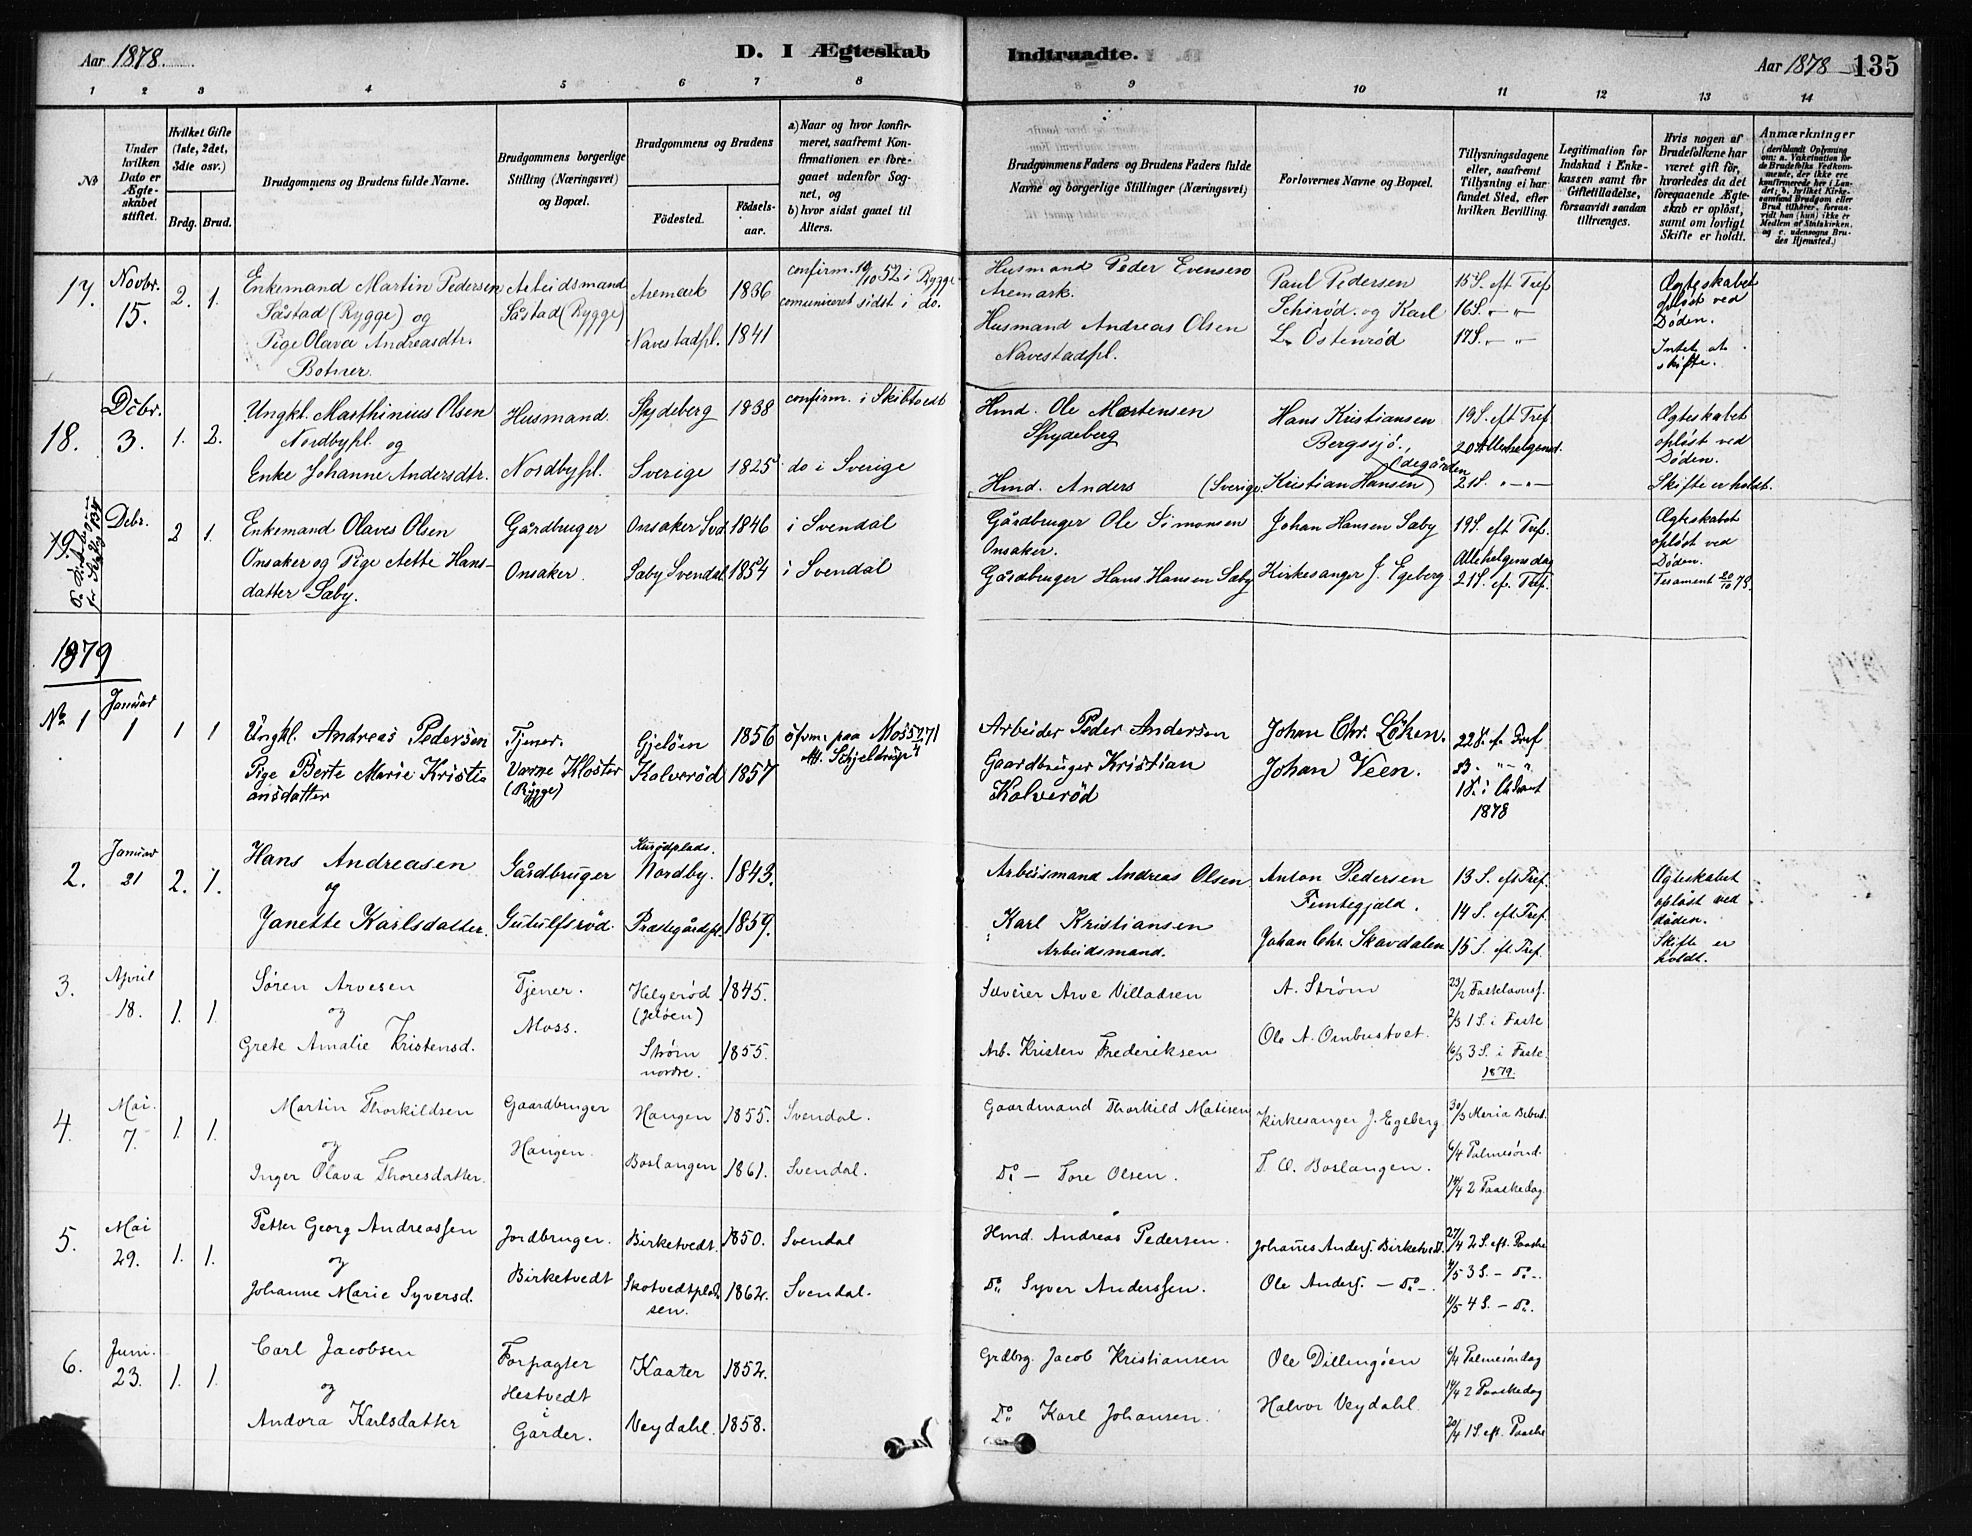 Aar 1878.
D. I Ægteskab
Indtraadte.
Aar 1878
135
1 2 3 4 5 6 7 8 9 10 11 12 13 14
No
Under hvilken Dato er Ægteskabet stiftet.
Hvilket Gifte (1ste, 2det, 3die osv.)
Brdg. Brud.
Brudgommens og Brudens fulde Navne.
Brudgommens borgerlige Stilling (Næringsvei) og Bopæl.
Brudgommens og Brudens
Fødested.
Fødselsaar.
a) Naar og hvor konfirmeret, saafremt Konfirmationen er foregaaet udenfor Sognet, og
b) hvor sidst gaaet til Alters.
Brudgommens Faders og Brudens Faders fulde Navne og borgerlige Stillinger (Næringsvei)
Forlovernes Navne og Bopæl.
Tillysningsdagene eller, saafremt Tillysning ei har fundet Sted, efter hvilken Bevilling.
Legitimation for Indskud i Enkekassen samt for Giftetilladelse, forsaavidt saadan tiltrænges.
Hvis nogen af Brudefolkene har været gift før, hvorledes da det foregaaende Ægteskab er opløst, samt om lovligt Skifte er holdt.
Anmærkninger (deriblandt Oplysning om: a. Vakcination for de Brudefolks Vedkommende, der ikke ere konfirmerede her i Landet; b. hvilket Kirkesamfund Brudgom eller Brud tilhører, forsaavidt han (hun) ikke er Medlem af Statskirken, og c. udensogns Brudes Hjemsted.)
17. Novbr. 15. 2. 1.
Enkemand Martin Pedersen
Såstad (Rygge) og
Pige Olava Andreasdtr.
Botner.
Arbeidsmand
Såstad (Rygge)
Aremark 1836
Navestadpl. 1841
confirm. 10/10 52 i Rygge
comuniceret sidst i do.
Husmand Peder Evensen
Aremark.
Husmand Andreas Olsen
Navestadpl.
Paul Pedersen
Schirød. og Karl
L. Østenrød
15 S. eft Tref
16 S. – "
17 S. – "
Ægteskabet
opløst ved
Døden.
Intet at
skifte.
18. Dcbr. 3. 1. 2.
Ungkl. Marthinius Olsen
Nordbypl. og
Enke Johanne Andersdtr.
Husmand.
Nordbypl.
Spydeberg 1838
Sverige 1825
confirm. i Skibtvedt
do i Sverige
Hmd. Ole Martensen
Spydeberg
Hmd. Anders (Sverige.
Hans Kristiansen
Bergssjö.
Ödegården
Kristian Hansen
19 S. eft Tref
20 Allehelgensd.
21 S. – " –
Ægteskabet
opløst ved
Døden.
Skifte er holdt.
19. Debr. 2 1.
Enkemand Olaves Olsen
Onsaker og Pige Aette Hans-
datter Saby.
Gårdbruger
Onsaker.
Onsaker Svd. 1846
Saby Svendal 1854
i Svendal
i Svendal
Gårdbruger Ole Simonsen
Onsaker.
Gårdbruger Hans Hansen Saby
Johan Hansen Saby
Kirkesanger J. Egeberg
19 S. eft Tref.
Allehelgensdag
21 S. ef. Tref.
Ægteskabet
opløst ved
Døden.
Tesament 20/10 78.
1879
No 1 Januar 1 1 1
Ungkl. Andreas Pedersen
Pige Berte Marie Kristi
ansdatter
Tjener.
Varne Kloster
(Rygge)
Gjelöen 1856
Kolverød 1857
Arbeider Peder Andersen
Gaardbruger Kristian
Kolverød
Johan Chr. Löken.
Johan Veen.
22 S. ef. Tref
23 – " – "
1 S. i Advent
1878
2. Januar 21 2. 1.
Hans Andreasen
og
Janette Karlsdatter.
Gårdbruger
Gutulfsrød.
Kurødplads.
Nordby. 1843.
Præstegårdspl. 1859.
Arbeismand Andreas Olsen
Karl Kristiansen
Arbeidsmand.
Anton Pedersen
Femtegjeld.
Johan Chr. Skavdalen
13 S. eft Tref.
14 S. eft Tref.
15 S. eft Tref.
Ægteskabet
opløst ved
døden.
Skifte er
holdt.
3. April 18. 1. 1.
Søren Arvesen
og
Grete Amalie Kristensd.
Tjener.
Moss.
Helgerød 1845.
(Jeløen)
Strøm 1855.
nordre.
Selveier Arve Villadsen
Arb. Kristen Frederiksen
A. Strøm
Ole A. Ombustvet.
23/2 Fastelavnss.
2/3 1 S. i Faste
16/3 3 S. i Faste
1879.
4. Mai. 7. 1. 1.
Martin Thorkildsen
og
Inger Olava Thoresdatter.
Gaardbruger
Haugen.
Haugen 1855.
Boslangen 1861.
Svendal.
Svendal.
Gaardmand Thorkild Matisen
Do – Tore Olsen.
Kirkesanger J. Egeberg.
T. O. Boslangen.
30/3 Maria Bebud.
6/4 Palmesönd.
14/4 2 Paaskedag.
5. Mai 29. 1. 1.
Petter Georg Andreassen
og
Johanne Marie Syversd.
Jordbruger.
Birketvedt
Birketvedt. 1850.
Skotvedtplad- 1862.
sen.
Svendal
Svendal.
Hmd. Andreas Pedersen.
Do Syver Anderssen.
Johannes Anders. Birketvedt.
Ole Anders. – Do –.
27/4 2 S. eft. Paaske
4/5 3 S. – Do –.
11/5 4 S. – Do.
6. Juni. 23. 1. 1.
Carl Jacobsen
og
Andora Karlsdatter
Forpagter
Hestvedt
i
Garder.
Kaater 1852.
Veydahl. 1858.
Grdbrg. Jacob Kristiansen
Do Karl Johansen.
Ole Dillingöen
Halvor Veydahl.
6/4 Palmesöndag
14/4 2 Paaskedag
20/4 1 S. eft. Paaske